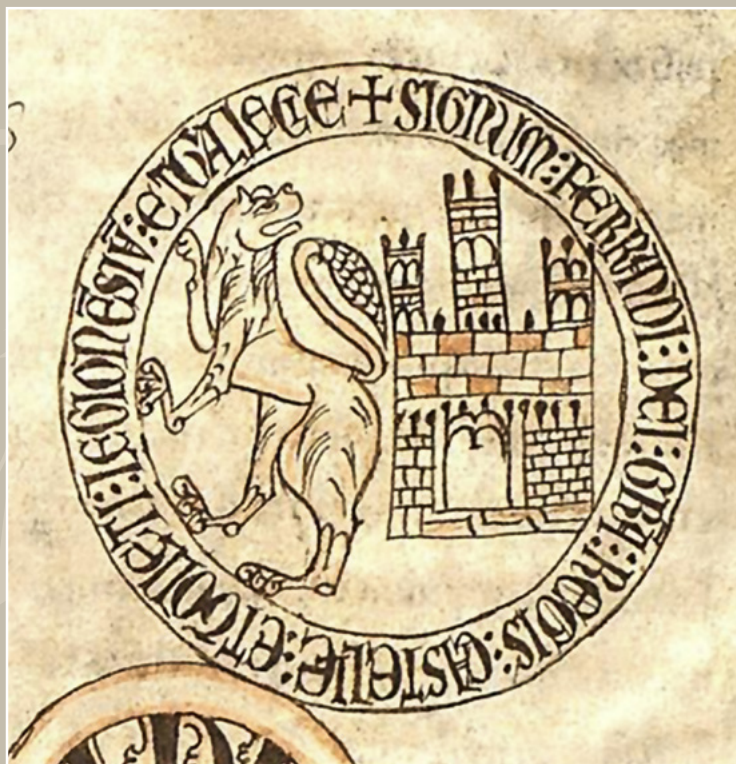 + SIGNUM : FERRANDI : DEI : GRA : REGIS : CASTELLE : ET TOLLETI : LEGIONESIU : ET GALLECIE